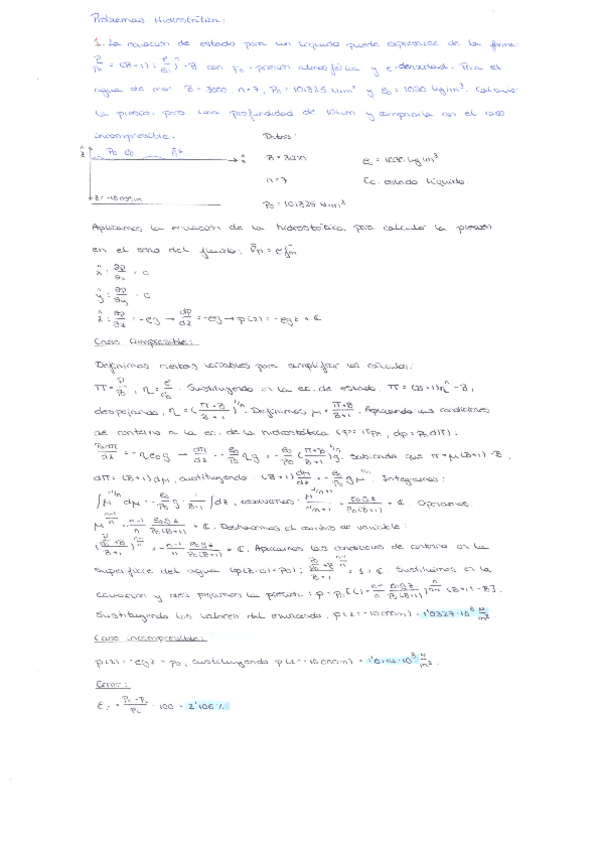 Problemas Hidrostática:
1. La ecuación de estado para un líquido puede expresarse de la forma
P/P₀ = (B+1)(ρ/ρ₀)ⁿ - B con p₀ = presión atmosférica y ρ = densidad. Para el
agua de mar B = 3000, n = 7, P₀ = 101325 N/m² y ρ₀ = 1030 kg/m³. Calcula
la presión para una profundidad de 10 km y compararla con el caso
incompresible.
Datos:
P₀ ρ₀
B = 3000 ρ₀ = 1030 kg/m³
n = 7 Ec. estado líquido
z = -10 000 m
P₀ = 101325 N/m²
Aplicamos la ecuación de la hidrostática para calcular la presión
en el seno del fluido: ∇p = ρfm
x: ∂p/∂x = 0
y: ∂p/∂y = 0
z: ∂p/∂z = -ρg → dp/dz = -ρg → p(z) = -ρgz + C
Caso compresible:
Definimos ciertas variables para simplificar los cálculos:
π = P/P₀, η = ρ/ρ₀. Sustituyendo en la ec. de estado: π = (B+1)ηⁿ - B,
despejando, η = (π+B/B+1)^1/n. Definimos μ = π+B/B+1. Aplicando las condiciones
de contorno a la ec. de la hidrostática (P = πP₀, dp = P₀dπ).
P₀dπ/dz = -ηρ₀g → dπ/dz = -ρ₀/P₀ ηg = -ρ₀/P₀ (π+B/B+1)^1/n g. Sabiendo que π = μ(B+1) - B,
dπ = (B+1)dμ, sustituyendo: (B+1) dμ/dz = -ρ₀/P₀ g μ^1/n. Integramos:
∫μ^-1/n dμ = -ρ₀/P₀ g · 1/B+1 ∫dz, μ^-1/n+1/-1/n+1 = -ρ₀gz/P₀(B+1) + C. Operamos:
μ^n-1/n = -n-1/n ρ₀gz/P₀(B+1) + C. Deshacemos el cambio de variable:
(P/P₀+B/B+1)^n-1/n = -n-1/n ρ₀gz/P₀(B+1) + C. Aplicamos las condiciones de contorno en la
superficie del agua (p(z=0) = P₀): (P₀/P₀+B/B+1)^n-1/n = 1 = C. Sustituimos en la
ecuación y despejamos la presión: p = P₀[(1 - n-1/n ρ₀gz/P₀(B+1))^n/n-1 (B+1) - B].
Sustituyendo los valores del enunciado, p(z = -10 000 m) = 1'0327·10⁸ N/m².
Caso incompresible:
p(z) = -ρgz + P₀, sustituyendo p(z = -10 000 m) =
Error:
· 100 = 2'106 %